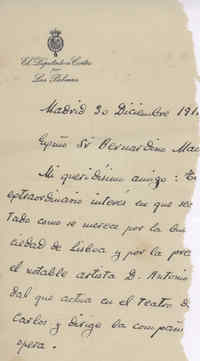 El Diputado a Cortes
por
Las Palmas
Madrid 30 Diciembre 191
Exmo Sr Bernardino Mac
Mi queridísimo amigo: En
extraordinario interés en que sea
tado como se merece por la bue
ciedad de Lisboa y por la pren
el notable artista D. Antonio
dal que actua en el teatro de
Carlos y dirige la compañ
opera.